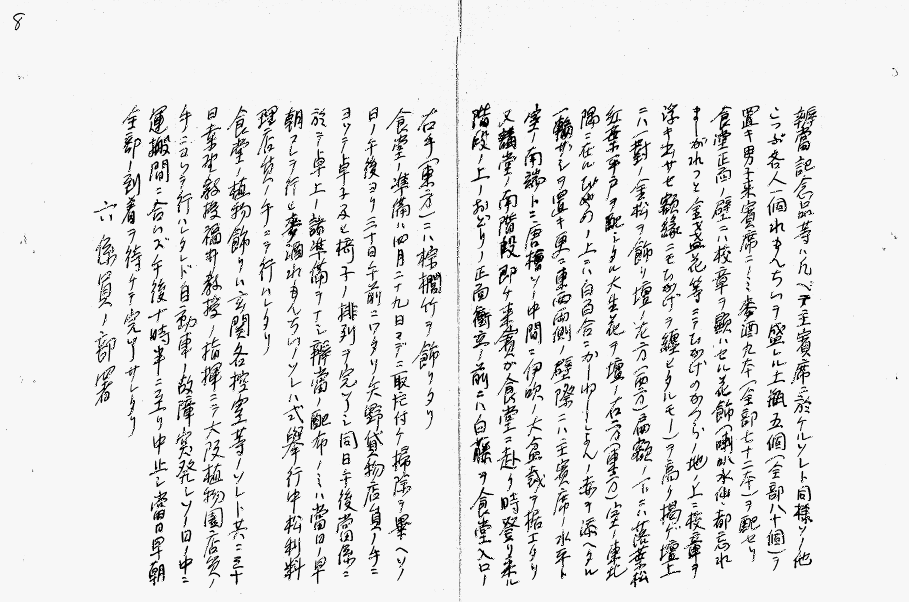 8
辨當記念品等ハ凡ベテ主賓席ニ於ケルソレト同様ソノ他
こつぷ各人一個れもんちいヲ盛レル土瓶五個(全部八十個)ヲ
置キ男子来賓席ニノミ麥酒九本(全部七十二本)ヲ配セリ
食堂正面ノ壁ニハ校章ヲ顯ハセル花飾(喇叭水仙都忘れ
まーがれつと金盞花等ニテひかげのかづらノ地ノ上ニ校章ヲ
浮キ出サセ額縁ニモひかげヲ纏ヒタルモノ)ヲ高ク掲ゲ壇上
ニハ一對ノ金松ヲ飾リ壇ノ左方(西方)扁額ノ下ニハ落葉松
紅葉平戸ヲ配シタル大生花ヲ壇ノ右方(東方)室ノ東北
隅ニ在ルぴあのノ上ニハ白百合ニかーねーしょんノ姿ヲ添ヘタル
一輪ザシヲ置キ更ニ東西兩側ノ壁際ニハ主賓席ノ水平ト
室ノ南端トニ唐檜ソノ中間ニ伊吹ノ大盆栽ヲ据エタリ
又講堂ノ南階段即チ来賓ガ食堂ニ赴ク時登リ来ル
階段ノ上ノおどりノ正面衝立ノ前ニハ白藤ヲ食堂入口ノ
右手(東方)ニハ棕櫚竹ヲ飾リタリ
食堂ノ準備ハ四月二十九日マデニ取片付ケ掃除ヲ畢ヘソノ
日ノ午後ヨリ三十日午前ニワタリ矢野貸物店員ノ手ニ
ヨッテ卓子及ビ椅子ノ排列ヲ完了シ同日午後當係ニ
於テ卓上ノ諸準備ヲナシ辨當ノ配布ノミハ當日ノ早
朝コレヲ行ヒ麥酒れもんちいノソレハ式擧行中松利料
理店員ノ手ニテ行ハレタリ
食堂ノ植物飾リハ玄關各控室等ノソレト共ニ三十
日奏聖教授福井教授ノ指揮ニテ大阪植物園店員ノ
手ニヨッテ行ハレタレド自動車ノ故障突発シソノ日ノ中ニ
運搬間ニ合ハズ午後十時半ニ至リ中止シ當日早朝
全部ノ到着ヲ待ケテ完了サレタリ
六 係員ノ部署